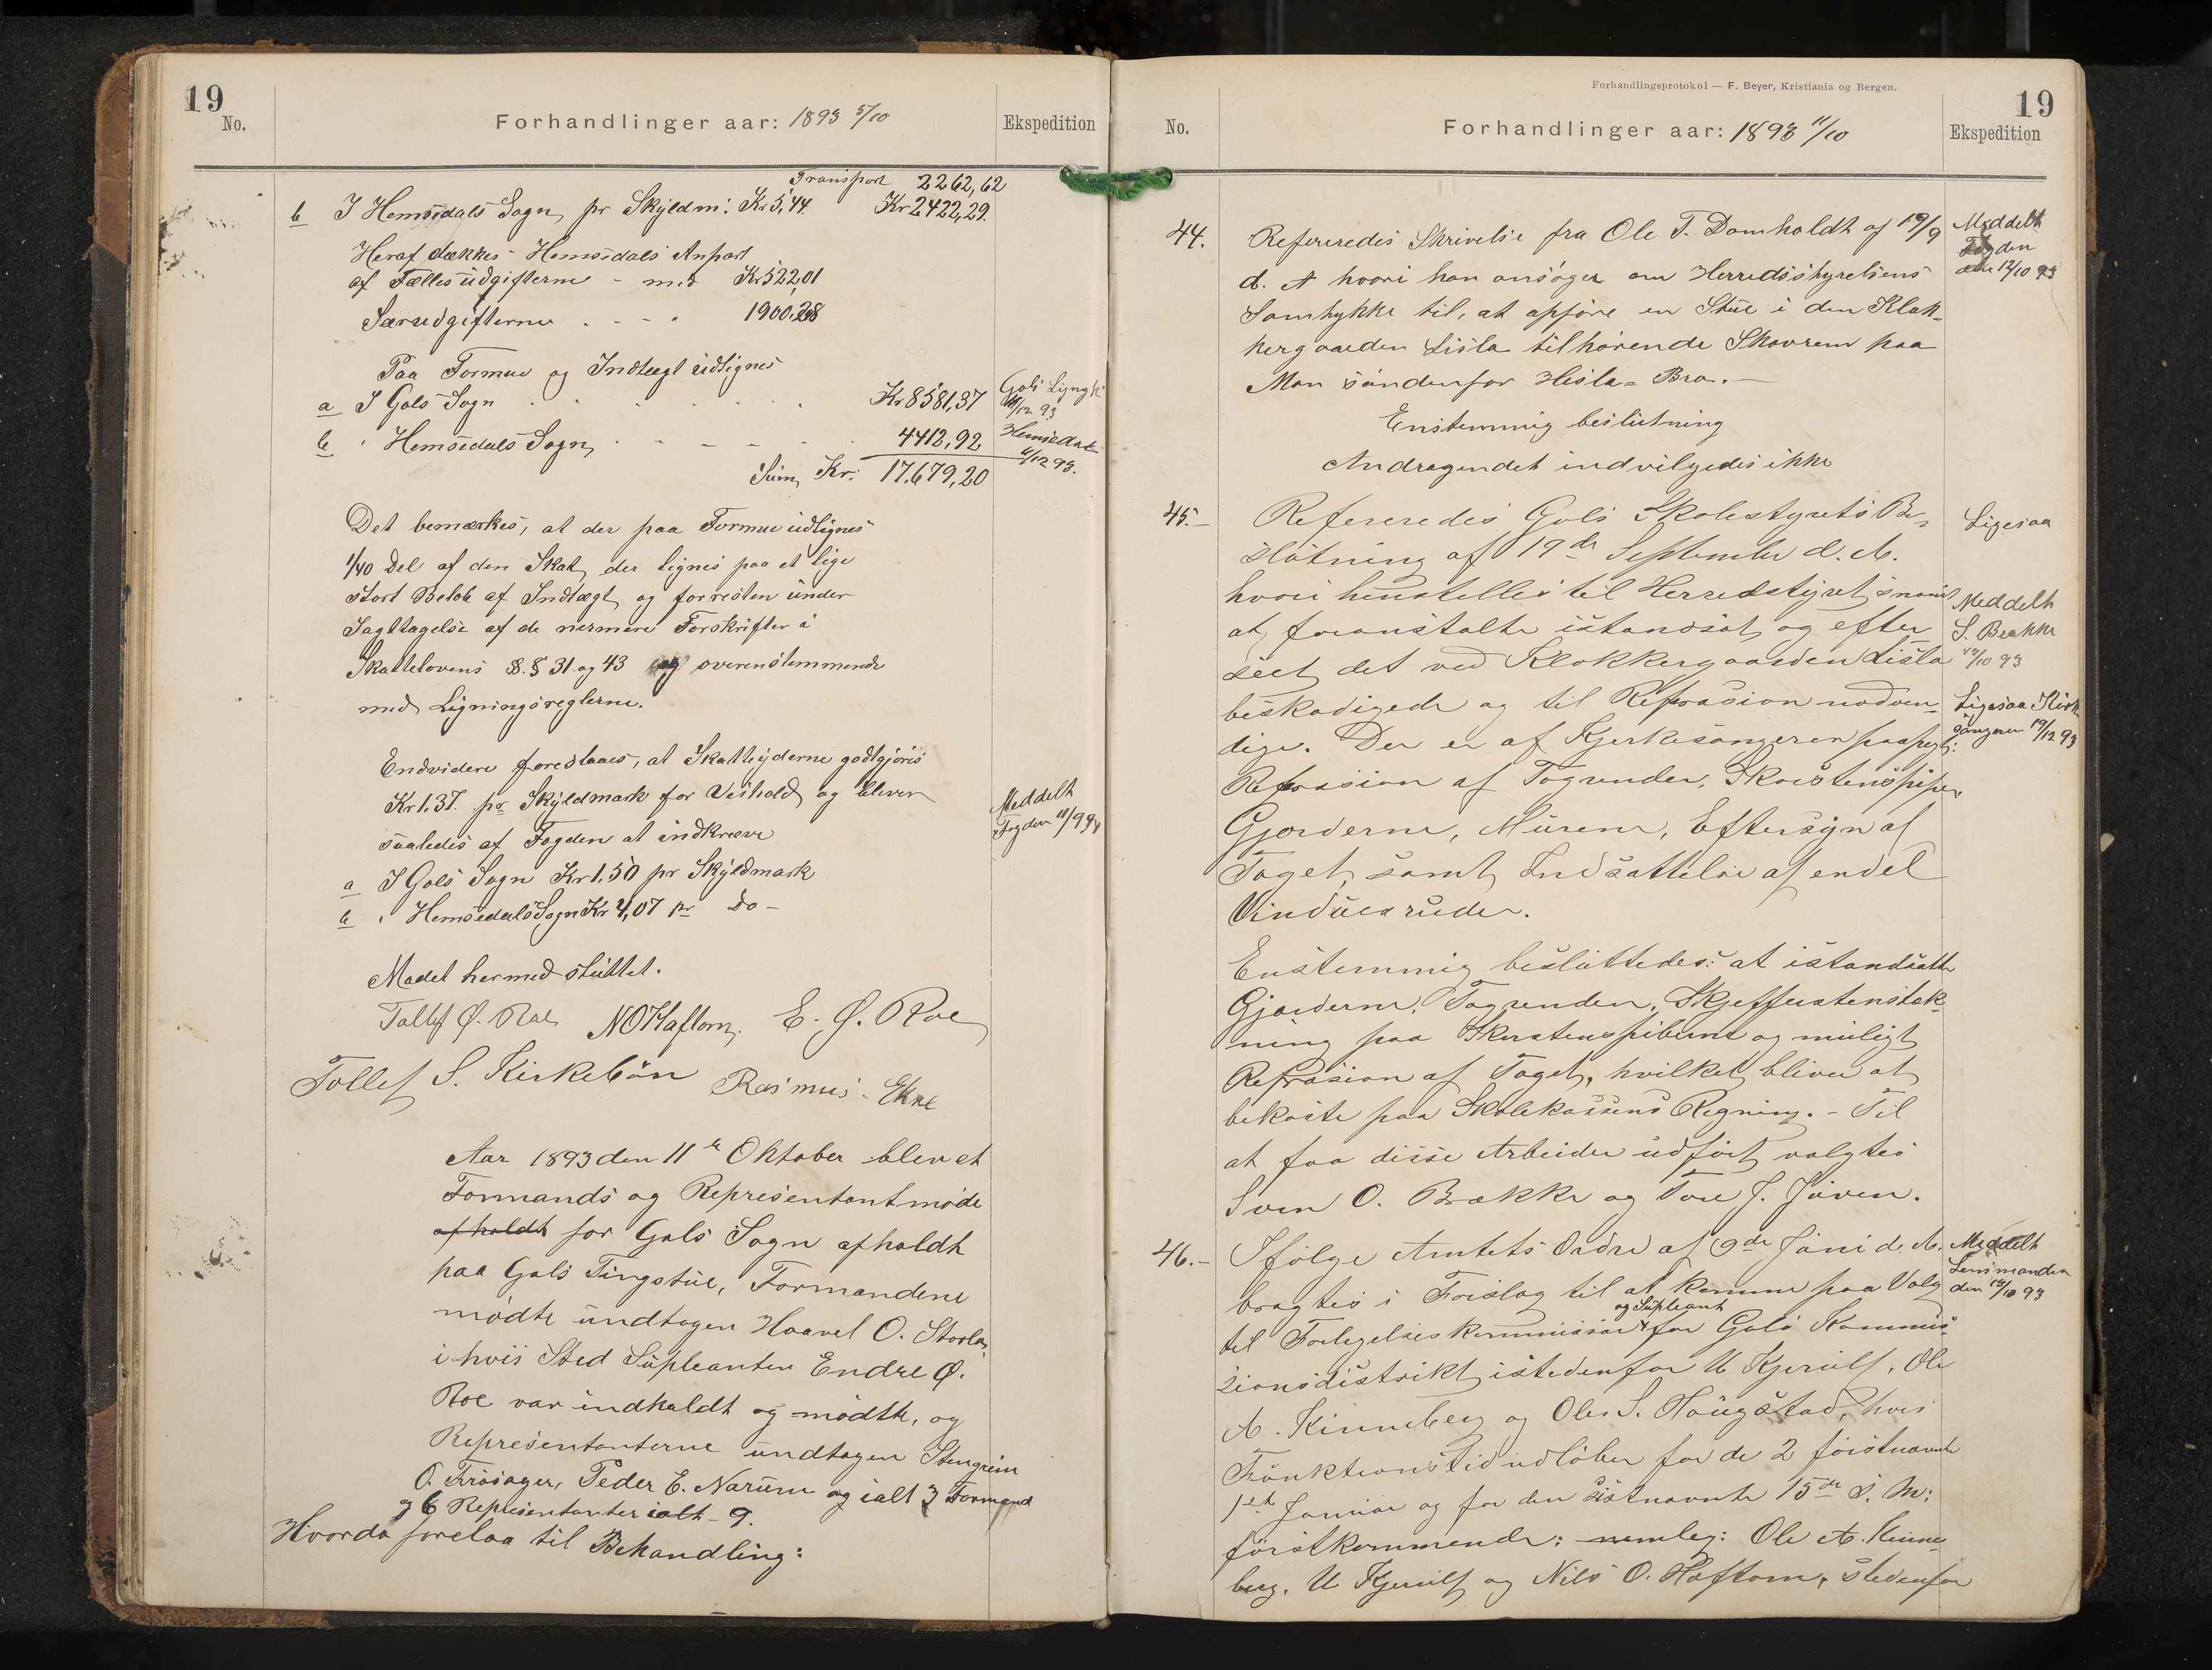 19
No.
Forhandlinger aar: 1893 5/10
Ekspedition
Transport 2262,62
b I Hemsedals Sogn, pr Skyldm: Kr 5,44. Kr 2422,29.
Heraf dækkes Hemsedals Anpart
af Fællesudgifterne - med Kr 522,01
Særudgifterne . - - " 1900,28
Paa Formue og Indtægt udlignes
a I Gols Sogn . . . . . . Kr 8581,37
b " Hemsedals Sogn, . - - - - . 4412,92
Sum, Kr: 17.679,20
Gols
/12 93
Hemsedal
/12 93.
Det bemærkes, at der paa Formue udlignes
1/40 Del af den Skat, der lignes paa et lige
stort Beløb af Indtægt, og forresten under
Iagttagelse af de nærmere Forskrifter i
Skattelovens §.§ 31 og 43 og overenstemmende
med Ligningsreglerne.
Endvidere foreslaaes, at Skatteyderne godtgjøres
Kr 1.37. pr Skyldmark for Veihold, og bliver
saaledes af Fogden at indkræve
a I Gols Sogn Kr 1,50 pr Skyldmark
b " Hemsedals Sogn Kr 4,07 pr Do -
Meddelt
Fogden 11/9 94
Mødet hermed sluttet.
Tollef Ø. Roe N O Haftorn, E. Ø. Roe
Tollef S. Kirkebøn Rasmus Ekre
Aar 1893 den 11te Oktober blev et
Formands og Representantmøde
afholdt for Gols Sogn afholdt
paa Gols Tingstue, Formandene
mødte undtagen Haavel O. Storla,
i hvis Sted Supleanten Endre Ø.
Roe var indkaldt og mødte, og
Representanterne undtagen Stengrim
O. Frøsager, Peder E. Narum og ialt 3 Formænd
og 6 Representanter ialt - 9.
Hvorda forelaa til Behandling:
Forhandlingsprotokol — F. Beyer, Kristiania og Bergen.
19
No.
Forhandlinger aar: 1893 11/10
Ekspedition
44. Refereredes Skrivelse fra Ole T. Domholdt af 19/9
d. A hvori han ansøger om Herredsstyrelsens
Samtykke til, at opføre en Stue i den Klok-
kergaarden Lisla tilhørende Skovrem paa
Moen søndenfor Hesla- Bro. —
Enstemmig beslutning
Andragendet indvilgedes ikke
Meddelt
Fogden
den 12/10 93
45. - Refereredes Gols Skolestyrets Be-
slutning af 19de September d. A.
hvori henstilles til Herredstyret snarest
at, foranstalte istandsat, og efter
seet, det ved Klokkergaarden Lisla
beskadigede og til Reprasion nødven-
dige. Der er af Kjerkesangeren paapegt:
Reprasion af Tagrender, Skorstenspiper
Gjorderne, Murene, Eftersyn af
Taget, samt, Indsættelse af endel
Vinduesruder.
Ligesaa
Meddelt
S. Brække
12/10 93
Ligesaa Kirk
sangeren 19/12 93
Enstemmig besluttedes: at istandsætte
Gjorderne, Tagrenden, Skjefferstenstæk-
ning paa Skorstenspiberne og muligt
Reprasion af Taget, hvilket, bliver at
bekoste paa Skolekassens Regning. - Til
at faa disse Arbeider udført, valgtes
Sven O. Brække og Tore J. Juven.
46. - Ifølge Amtets Ordre af 9de Juni d. A.
bragtes i Forslag til at komme paa Valg
og Supleant
til Forligelseskommissær for Gols Kommis-
sionsdistrikt, istedenfor U Kjerulf, Ole
A. Kinneberg og Ole S. Haugstad, hvis
Funktionstid udløber for de 2 førstnævnte
1ste Januar og for den sistnævnte 15de s. M:
førstkommende: nemleg: Ole A. Kinne-
berg, U Kjerulf, og Nils O. Haftorn, stedenfor
Meddelt
Lensmanden
den 12/10 93